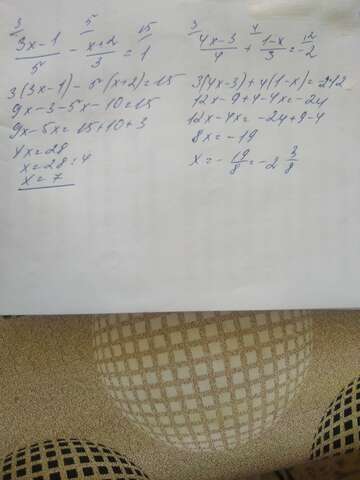 3 5 15
3x-1/5 - x+2/3 = 1
3(3x-1) - 5(x+2) = 15
9x-3-5x-10=15
9x-5x=15+10+3
4x=28
x=28:4
x=7
3 4 12
4x-3/4 + 1-x/3 = -2
3(4x-3)+4(1-x)=-2·12
12x-9+4-4x=-24
12x-4x=-24+9-4
8x=-19
x=-19/8=-2 3/8